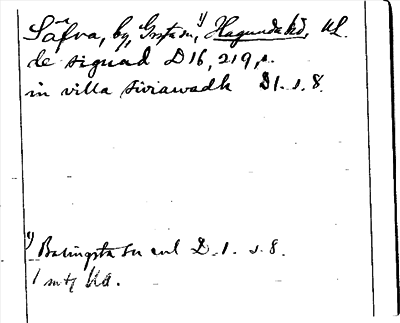 Såfva, by, Grsta sn,¹⁾ Hagunda hd, UL.
de signad D16, 219, s.
in villa siviawadh D1. s. 8.
¹⁾ Balingsta sn enl D. 1. s. 8.
1 mtl